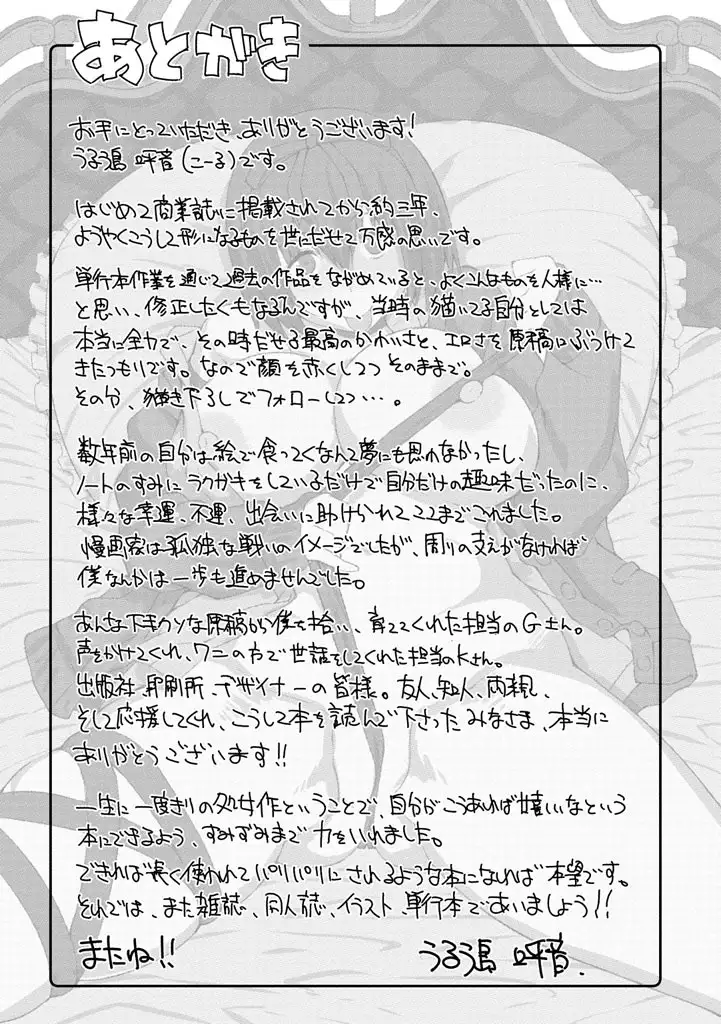 あとがき
お手にとっていただき、ありがとうございます!
うるう島 呼音(こーる)です。
はじめて商業誌に掲載されてから約三年、
ようやくこうして形になるものを世にだせて万感の思いです。
単行本作業を通じて過去の作品をながめていると、よくこんなものを人様に…
と思い、修正したくもなるんですが、当時の描いてる自分としては
本当に全力で、その時だせる最高のかわいさと、エロさを原稿にぶつけて
きたつもりです。なので顔を赤くしつつそのままで。
その分、描き下ろしでフォローしつつ…。
数年前の自分は絵で食ってくなんて夢にも思わなかったし、
ノートのすみにラクガキをしているだけで自分だけの趣味だったのに、
様々な幸運、不運、出会いに助けられてここまでこれました。
漫画家は孤独な戦いのイメージでしたが、周りの支えがなければ
僕なんかは一歩も進めませんでした。
あんな下手クソな原稿から僕を拾い、育ててくれた担当のGさん。
声をかけてくれ、ワニの方で世話をしてくれた担当のKさん。
出版社、印刷所、デザイナーの皆様。友人、知人、両親、
そして応援してくれ、こうして本を読んで下さったみなさま、本当に
ありがとうございます!!
一生に一度きりの処女作ということで、自分がこうあれば嬉しいなという
本にできるよう、すみずみまで力をいれました。
できれば長く使われてパリパリにされるような本になれば本望です。
それでは、また雑誌、同人誌、イラスト、単行本であいましょう!!
またね!!
うるう島 呼音.